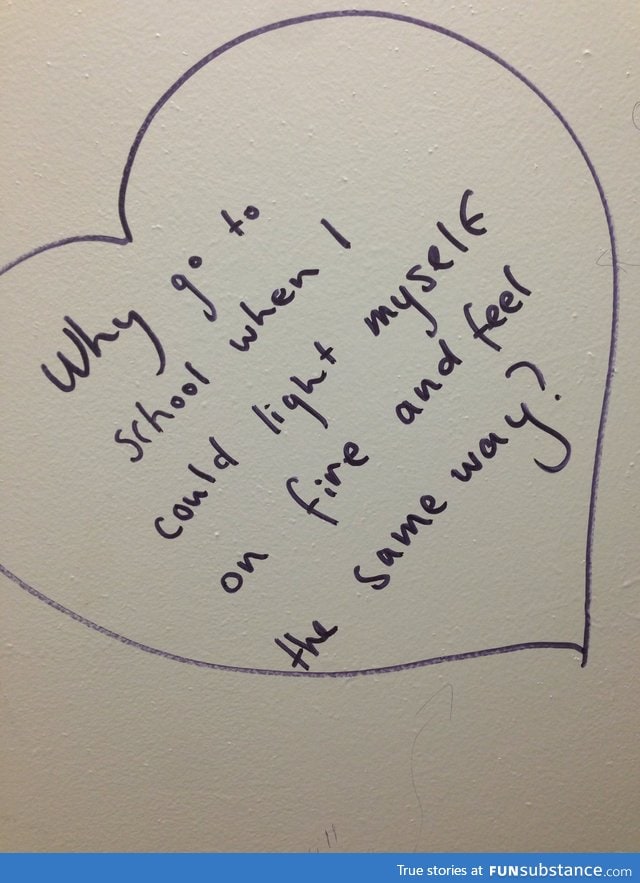 Why go to
school when I
could light myself
on fire and feel
the same way?
True stories at FUNsubstance.com